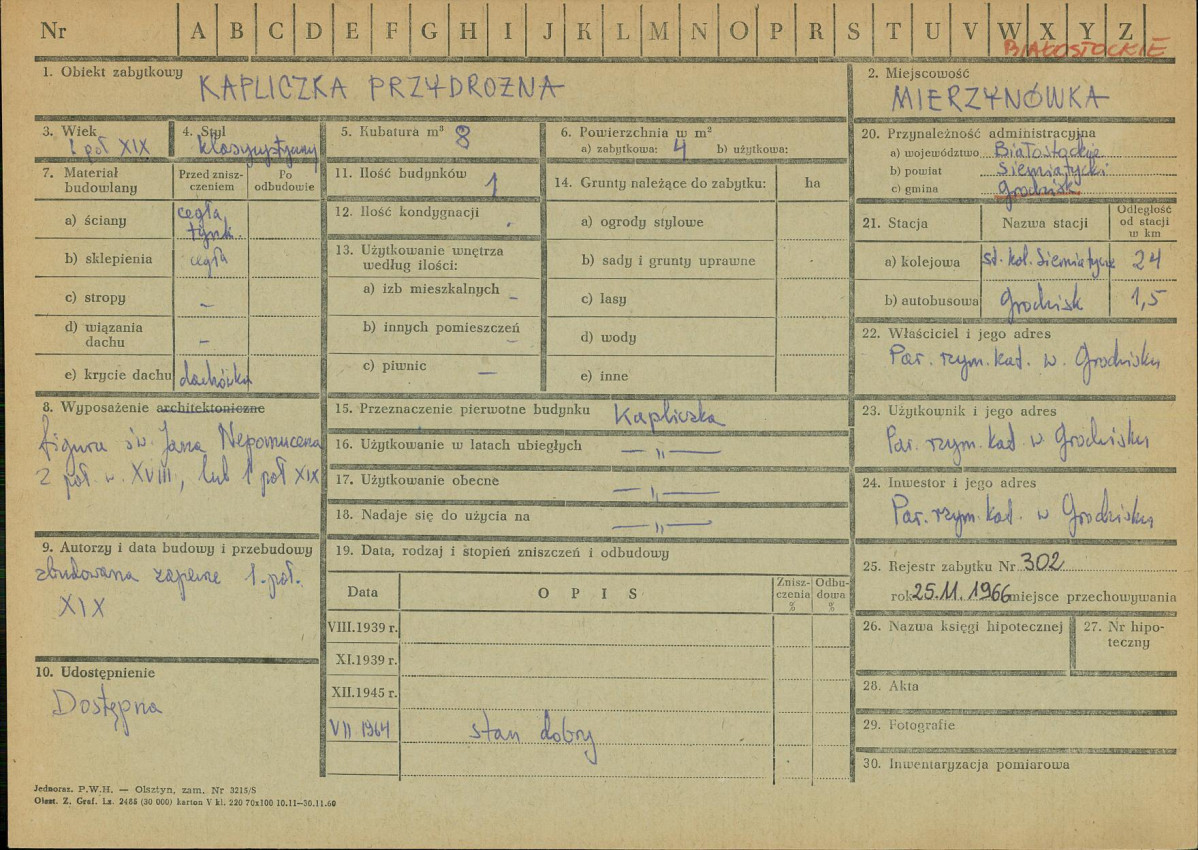 Nr A B C D E F G H I J K L M N O P R S T U V W X Y Z
BIAŁOSTOCKIE
1. Obiekt zabytkowy
KAPLICZKA PRZYDROŻNA
2. Miejscowość
MIERZYNÓWKA
3. Wiek
1 poł XIX
4. Styl
klasycystyczny
5. Kubatura m³ 8
6. Powierzchnia w m²
a) zabytkowa: 4 b) użytkowa:
20. Przynależność administracyjna
a) województwo Białostockie
b) powiat Siemiatycki
c) gmina Grodzisk
7. Materiał budowlany
Przed zniszczeniem
Po odbudowie
a) ściany cegła, tynk.
b) sklepienia cegła
c) stropy –
d) wiązania dachu –
e) krycie dachu dachówka
11. Ilość budynków 1
12. Ilość kondygnacji -
13. Użytkowanie wnętrza
według ilości:
a) izb mieszkalnych –
b) innych pomieszczeń –
c) piwnic –
14. Grunty należące do zabytku: ha
a) ogrody stylowe
b) sady i grunty uprawne
c) lasy
d) wody
e) inne
21. Stacja Nazwa stacji
Odległość
od stacji
w km
a) kolejowa st. kol. Siemiatycze 24
b) autobusowa Grodzisk 1,5
22. Właściciel i jego adres
Par. rzym. kat. w Grodzisku
8. Wyposażenie architektoniczne
figura św. Jana Nepomucena
2 poł. w. XVIII, lub 1 poł XIX
15. Przeznaczenie pierwotne budynku Kapliczka
16. Użytkowanie w latach ubiegłych — „ —
17. Użytkowanie obecne — „ —
18. Nadaje się do użycia na — „ —
23. Użytkownik i jego adres
Par. rzym. kat. w Grodzisku
24. Inwestor i jego adres
Par. rzym. kat. w Grodzisku
9. Autorzy i data budowy i przebudowy
zbudowana zapewne 1. poł.
XIX
19. Data, rodzaj i stopień zniszczeń i odbudowy
Data OPIS
Zniszczenia %
Odbudowa %
VIII.1939 r.
XI.1939 r.
XII.1945 r.
VII 1964 stan dobry
10. Udostępnienie
Dostępna
25. Rejestr zabytku Nr 302
rok 25.11.1966 miejsce przechowywania
26. Nazwa księgi hipotecznej
27. Nr hipoteczny
28. Akta
29. Fotografie
30. Inwentaryzacja pomiarowa
Jednoraz. P.W.H. — Olsztyn, zam. Nr 3215/S
Olszt. Z. Graf. Lz. 2485 (30 000) karton V kl. 220 70x100 10.11—30.11.60